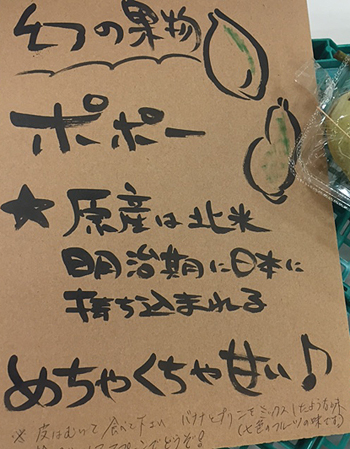 幻の果物
ポポー
★ 原産は北米
明治期に日本に
持ち込まれる
めちゃくちゃ甘い♪
※ 皮はむいて食べて下さい バナナとプリンをミックスしたような味
(七色のフルーツの味です)
スプーンでどうぞ!